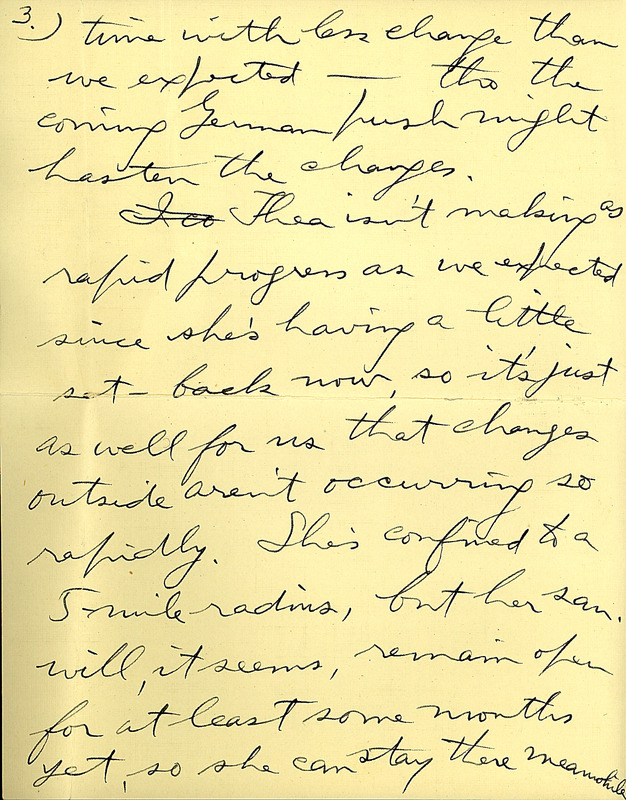 3.) time with less change than
we expected — tho the
coming German push might
hasten the changes.
Thea isn't making as
rapid progress as we expected
since she's having a little
set-back now, so it's just
as well for us that changes
outside aren't occurring so
rapidly. She's confined to a
5-mile radius, but her san.
will, it seems, remain open
for at least some months
yet, so she can stay there meanwhile